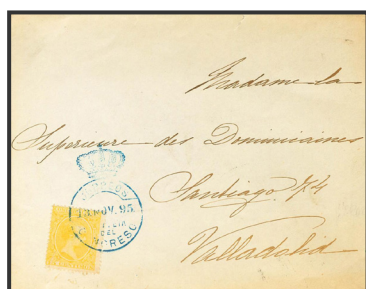 Madame la
Superieure des Dominicaines
Santiago 74
Valladolid
13 NOV. 95
DEL
CONGRESO